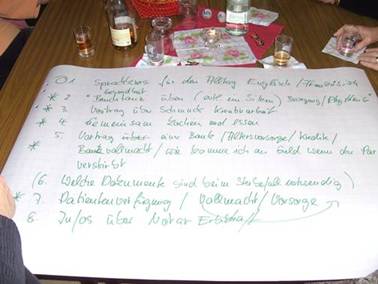 O 1 Sprachkurs für den Alltag Englisch / Französisch
Gesundheit
* 2. "Bauchtanz üben (alte im Sitzen) Bewegung / Rhythmus"
* 3. Vortrag über Schmuck
* 4. Gemeinsam kochen und essen
5. Vortrag über eine Bank (Altersvorsorge / Kredite /
* Bankvollmacht / wie komme ich an Geld wenn der Par
verstirbt
(6. Welche Dokumente sind beim Sterbefall notwendig)
* 7. Patientenverfügung / Vollmacht / Vorsorge
8. Infos über Notar Erbschaft